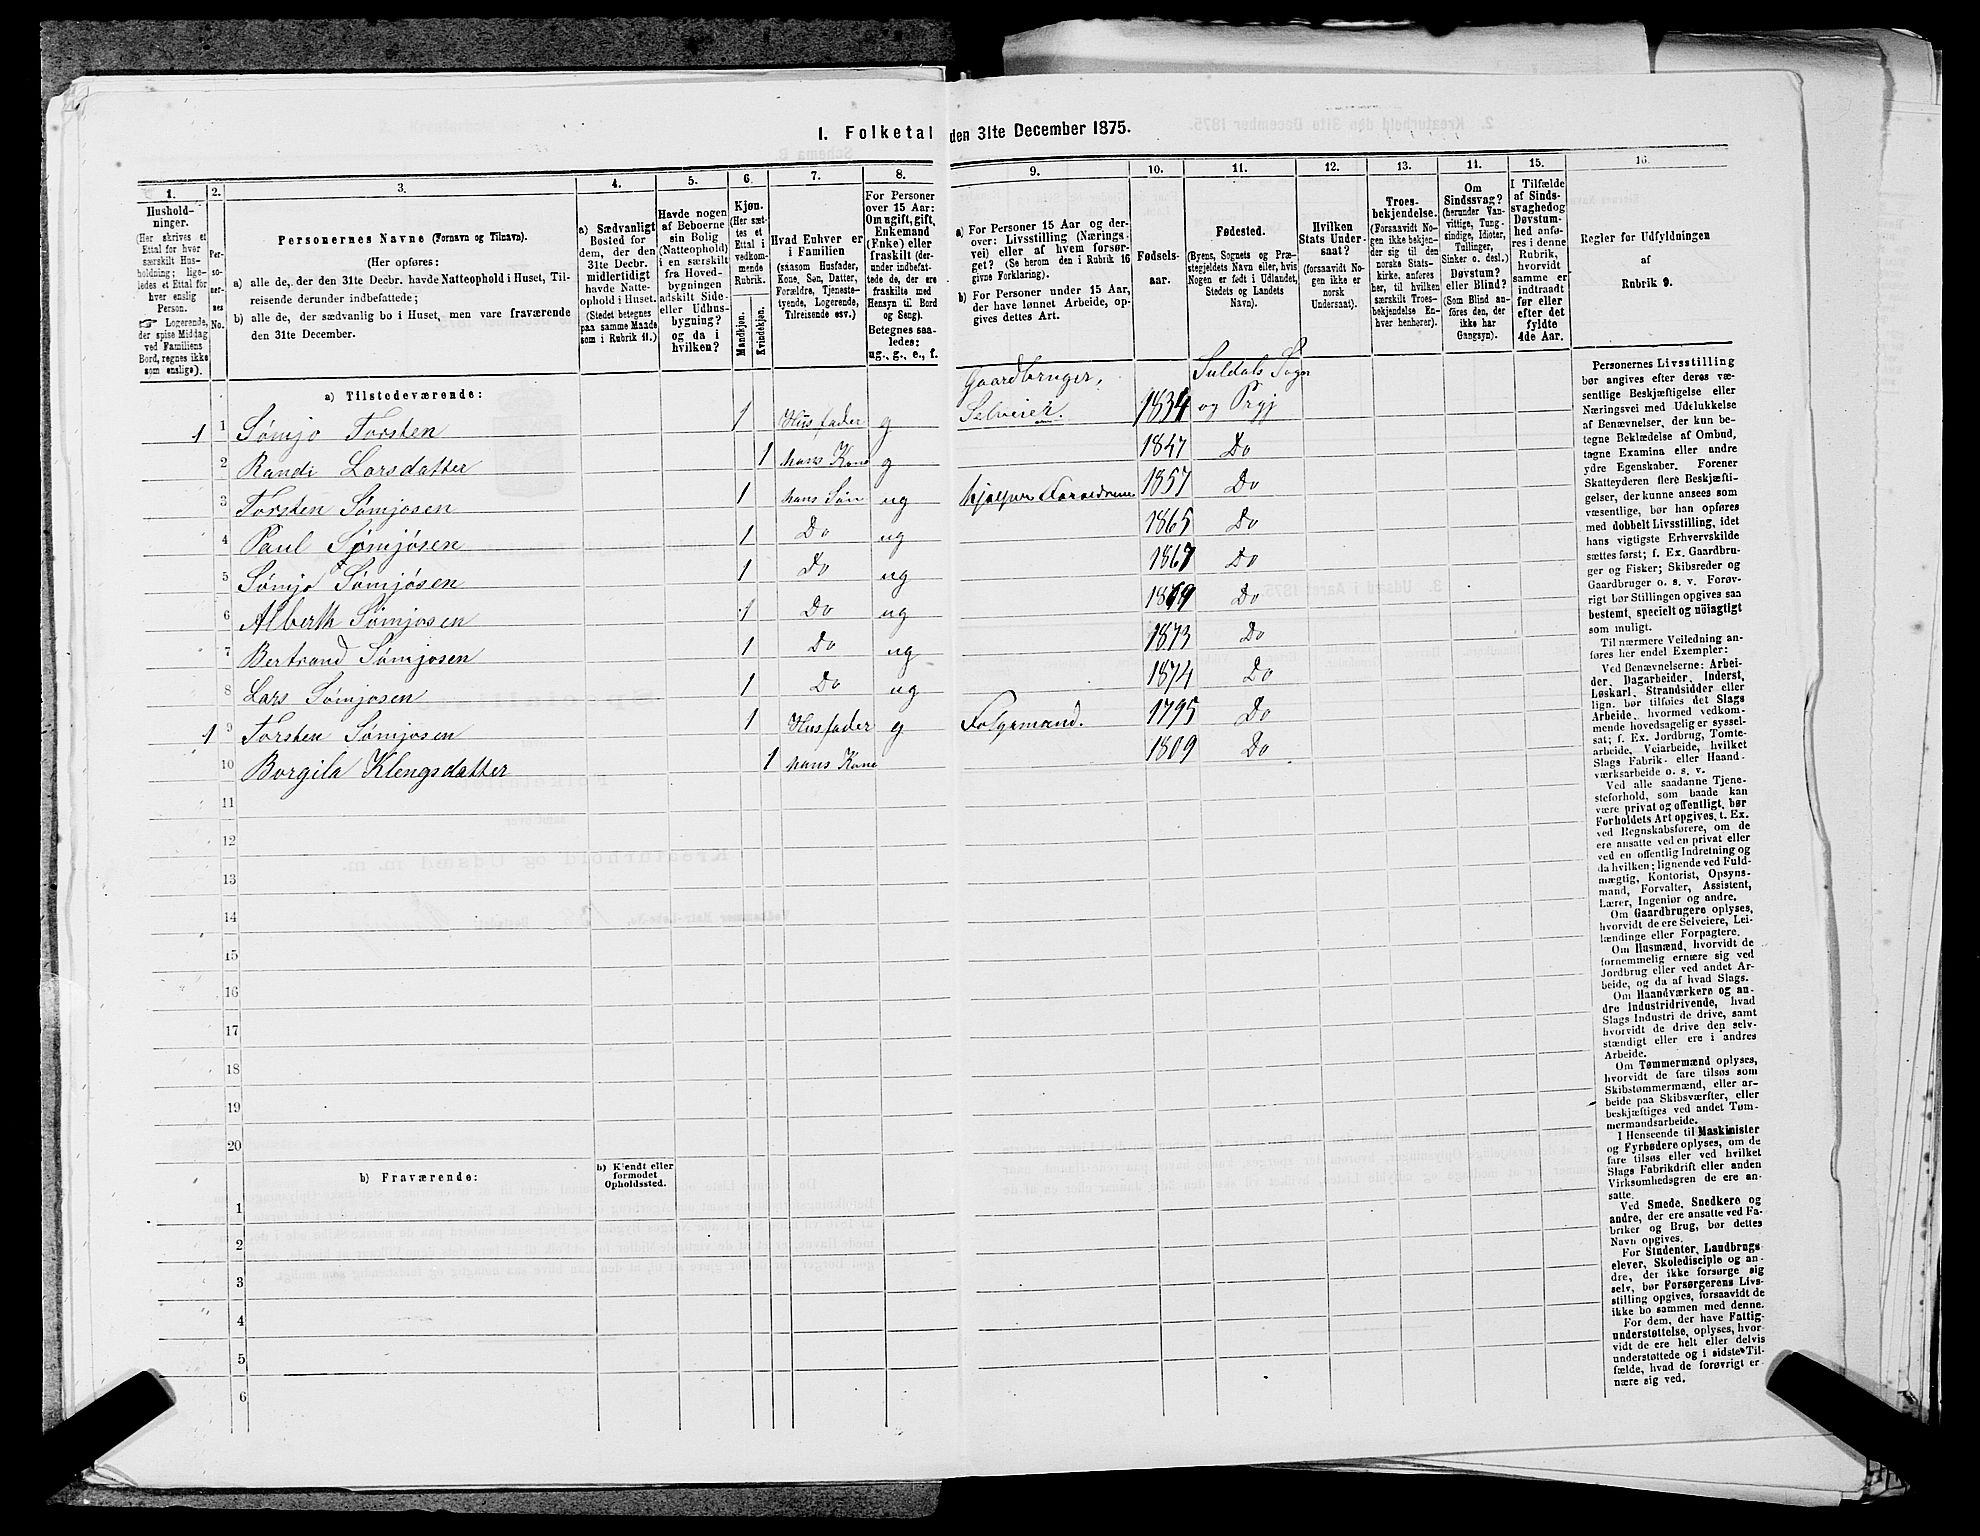 1. Folketal den 31te December 1875.
1. 2. 3. 4. 5. 6. 7. 8. 9. 10. 11. 12. 13. 14. 15. 16.
Hushold-
ninger.
(Her skrives et
Ettal for hver
særskilt Hus-
holdning; lige-
ledes et Ettal for
hver enslig
Person.
☞ Logerende,
der spise Middag
ved Familiens
Bord, regnes ikke
som enslige).
Per-
so-
ner-
nes
No.
Personernes Navne (Fornavn og Tilnavn).
(Her opføres:
a) alle de, der den 31te Decbr. havde Natteophold i Huset, Til-
reisende derunder indbefattede;
b) alle de, der sædvanlig bo i Huset, men vare fraværende
den 31te December.
a) Sædvanligt
Bosted for
dem, der den
31te Decbr.
midlertidigt
havde Natte-
ophold i Huset.
(Stedet betegnes
paa samme Maade
som i Rubrik 11.)
Havde nogen
af Beboerne
sin Bolig
(Natteophold)
i en særskilt
fra Hoved-
bygningen
adskilt Side-
eller Udhus-
bygning?
og da i
hvilken?
Kjøn.
(Her sæt-
tes et
Ettal i
vedkom-
mende
Rubrik.
Mandkjøn.
Kvindekjøn.
Hvad Enhver er
i Familien
(saasom Husfader,
Kone, Søn, Datter,
Forældre, Tjeneste-
tyende, Logerende,
Tilreisende osv.)
For Personer
over 15 Aar:
Om ugift, gift,
Enkemand
(Enke) eller
fraskilt (der-
under indbefat-
tede de, der ere
fraskilte med
Hensyn til Bord
og Seng).
Betegnes saa-
ledes:
ug., g., e., f.
a) For Personer 15 Aar og der-
over: Livsstilling (Nærings-
vei) eller af hvem forsør-
get? (Se herom den i Rubrik 16
givne Forklaring).
b) For Personer under 15 Aar,
der have lønnet Arbeide, op-
gives dettes Art.
Fødsels-
aar.
Fødested.
(Byens, Sognets og Præ-
stegjeldets Navn eller, hvis
Nogen er født i Udlandet,
Stedets og Landets
Navn).
Hvilken
Stats Under-
saat?
(forsaavidt No-
gen ikke er
norsk
Undersaat).
Troes-
bekjendelse.
(Forsaavidt No-
gen ikke bekjen-
der sig til den
norske Stats-
kirke, anføres
her, til hvilken
særskilt Troes-
bekjendelse En-
hver henhører).
Om
Sindssvag?
(herunder Van-
vittige, Tung-
sindige, Idioter,
Tullinger,
Sinker o. desl.)
Døvstum?
eller Blind?
(Som Blind an-
føres den, der
ikke har
Gangsyn).
I Tilfælde
af Sinds-
svaghed og
Døvstum-
hed anfø-
res i denne
Rubrik,
hvorvidt
samme er
indtraadt
før eller
efter det
fyldte
4de Aar.
Regler for Udfyldningen
af
Rubrik 9.
a) Tilstedeværende:
Gaardbruger, Suldals Sogn
1 1 Sømjo Torsten 1 Husfader g Selveier. 1834 og Prgj
2 Randi Larsdatter 1 hans Kone g 1847 Do
3 Torsten Sømjosen 1 hans Søn ug hjelper Foreldrene 1857 Do
4 Paul Sømjosen 1 Do ug 1865 Do
5 Sømjo Sømjosen 1 Do ug 1867 Do
6 Alberth Sømjosen 1 Do ug 1869 Do
7 Bertrand Sømjosen 1 Do ug 1873 Do
8 Lars Sømjosen 1 Do ug 1874 Do
1 9 Torsten Sømjosen 1 Husfader g Folgemand. 1795 Do
10 Borgila Klengsdatter 1 hans Kone 1809 Do
11
12
13
14
15
16
17
18
19
20
b) Fraværende: b) Kjendt eller
formodet
Opholdssted.
1
2
3
4
5
6
Personernes Livsstilling
bør angives efter deres væ-
sentlige Beskjæftigelse eller
Næringsvei med Udelukkelse
af Benævnelser, der kun be-
tegne Beklædelse af Ombud,
tagne Examina eller andre
ydre Egenskaber. Forener
Skatteyderen flere Beskjæfti-
gelser, der kunne ansees som
væsentlige, bør han opføres
med dobbelt Livsstilling, idet
hans vigtigste Erhvervskilde
sættes først; f. Ex. Gaardbru-
ger og Fisker; Skibsreder og
Gaardbruger o. s. v. Forøv-
rigt bør Stillingen opgives saa
bestemt, specielt og nöiagtigt
som muligt.
Til nærmere Veiledning an-
føres her endel Exempler:
Ved Benævnelserne: Arbei-
der, Dagarbeider, Inderst,
Løskarl, Strandsidder eller
lign. bør tilføies det Slags
Arbeide, hvormed vedkom-
mende hovedsagelig er syssel-
sat; f. Ex. Jordbrug, Tomte-
arbeide, Veiarbeide, hvilket
Slags Fabrik- eller Haand-
værksarbeide o. s. v.
Ved alle saadanne Tjene-
steforhold, som baade kan
være privat og offentligt, bør
Forholdets Art opgives, t. Ex.
ved Regnskabsførere, om de
ere ansatte ved en privat eller
ved en offentlig Indretning og
da hvilken; lignende ved Fuld-
mægtig, Kontorist, Opsyns-
mand, Forvalter, Assistent,
Lærer, Ingeniør og andre.
Om Gaardbrugere oplyses,
hvorvidt de ere Selveiere, Lei-
lændinge eller Forpagtere.
Om Husmænd, hvorvidt de
fornemmelig ernære sig ved
Jordbrug eller ved andet Ar-
beide, og da af hvad Slags.
Om Haandværkere og an-
dre Industridrivende, hvad
Slags Industri de drive, samt
hvorvidt de drive den selv-
stændigt eller ere i andres
Arbeide.
Om Tømmermænd oplyses,
hvorvidt de fare tilsøs som
Skibstømmermænd, eller ar-
beide paa Skibsværfter, eller
beskjæftiges ved andet Tøm-
mermandsarbeide.
I Henseende til Maskinister
og Fyrbødere oplyses, om de
fare tilsøs eller ved hvilket
Slags Fabrikdrift eller anden
Virksomhedsgren de ere an-
satte.
Ved Smede, Snedkere og
andre, der ere ansatte ved Fa-
briker og Brug, bør dettes
Navn opgives.
For Studenter, Landbrugs-
elever, Skoledisciple og an-
dre, der ikke forsørge sig
selv, bør Forsørgerens Livs-
stilling opgives, forsaavidt de
ikke bo sammen med denne.
For dem, der have Fattig-
understøttelse, oplyses, hvor-
vidt de ere helt eller delvis
understøttede og i sidste Til-
fælde, hvad de forøvrigt er-
nære sig ved.